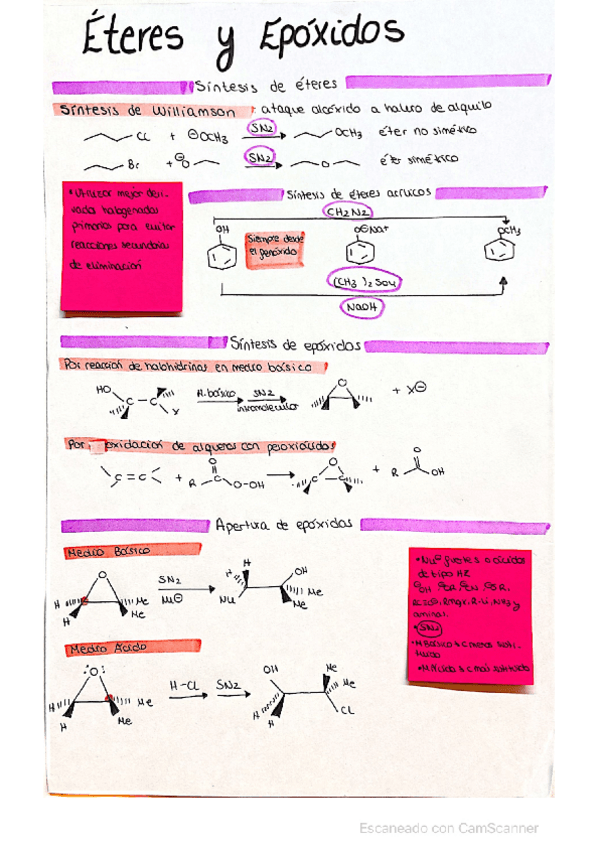 Éteres y Epóxidos
Síntesis de éteres
Síntesis de Williamson : ataque alcóxido a haluro de alquilo
Cl + ⊖OCH3 SN2 OCH3 éter no simético
Br + ⊖O SN2 O éter simético
• Utilizar mejor deri-
vados halogenados
primarios para evitar
reacciones secundarias
de eliminación
Síntesis de éteres acíclicos
CH2N2
OH O⊖Na+ OCH3
Siempre desde
el fenóxido
(CH3)2SO4
NaOH
Síntesis de epóxidos
Por reacción de halohidrinas en medio básico
HO C - C X M. básico SN2 intramolecular O + X⊖
Por oxidación de alquenos con peroxiácidos
C = C + R C O O-OH O C C + R O OH
Apertura de epóxidos
Medio Básico
O H H Me Me SN2 Nu⊖ H H Nu OH Me Me
• Nu⊖ fuertes o ácidos
de tipo HZ
⊖OH
acetil, RMgX, R-Li, NH3 y
aminas.
• SN2
• M Básico → C menos susti-
tuido
• M Ácido → C más sustituido
Medio Ácido
O H H Me Me H-Cl SN2 OH H H Me Me Cl
Escaneado con CamScanner